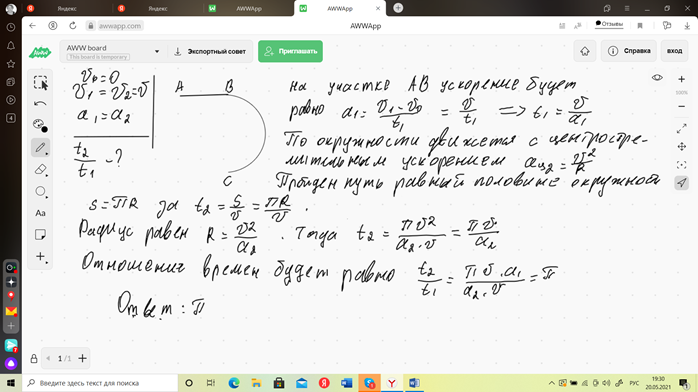 Яндекс
Яндекс
AWWApp
AWWApp
awwapp.com
AWWApp
Отзывы
AWW board
This board is temporary
Экспортный совет
Приглашать
Справка
вход
100%
Aa
v₀=0
v₁=v₂=v
a₁=a₂
t₂/t₁ -?
A B
C
на участке АВ ускорение будет
равно a₁=(v₁-v₀)/t₁ = v/t₁ => t₁=v/a₁
По окружности движется с центростре-
мительным ускорением aц₂=v²/R
Пройден путь равный половине окружной
s=πR за t₂=S/v=πR/v.
Радиус равен R=v²/a₂. Тогда t₂=πv²/(a₂·v)=πv/a₂
Отношение времен будет равно t₂/t₁=(πv·a₁)/(a₂·v)=π
Ответ: π
1/1
Введите здесь текст для поиска
РУС
19:30
20.05.2021